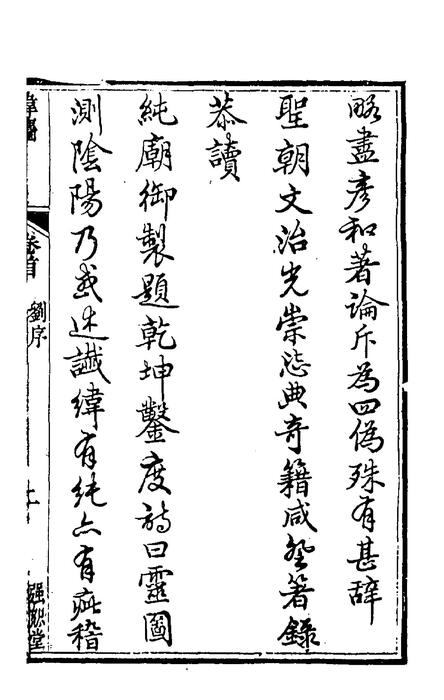 略盡彥和著論斥為四偽殊有甚辭
聖朝文治光崇祕典奇籍咸登著錄
恭讀
純廟御製題乾坤鑿度詩曰靈圖
測陰陽乃或述讖緯有純亦有疵稽
卷首
劉序